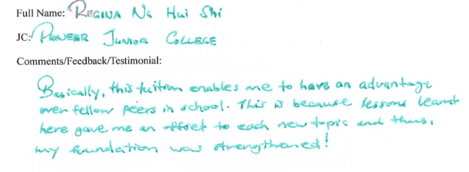 Full Name: REGINA NG HUI SHI
JC: PIONEER JUNIOR COLLEGE
Comments/Feedback/Testimonial:
Basically, this tuition enables me to have an advantage
over fellow peers in school. This is because lessons learnt
here gave me an offset to each new topic and thus,
my foundation was strengthened!